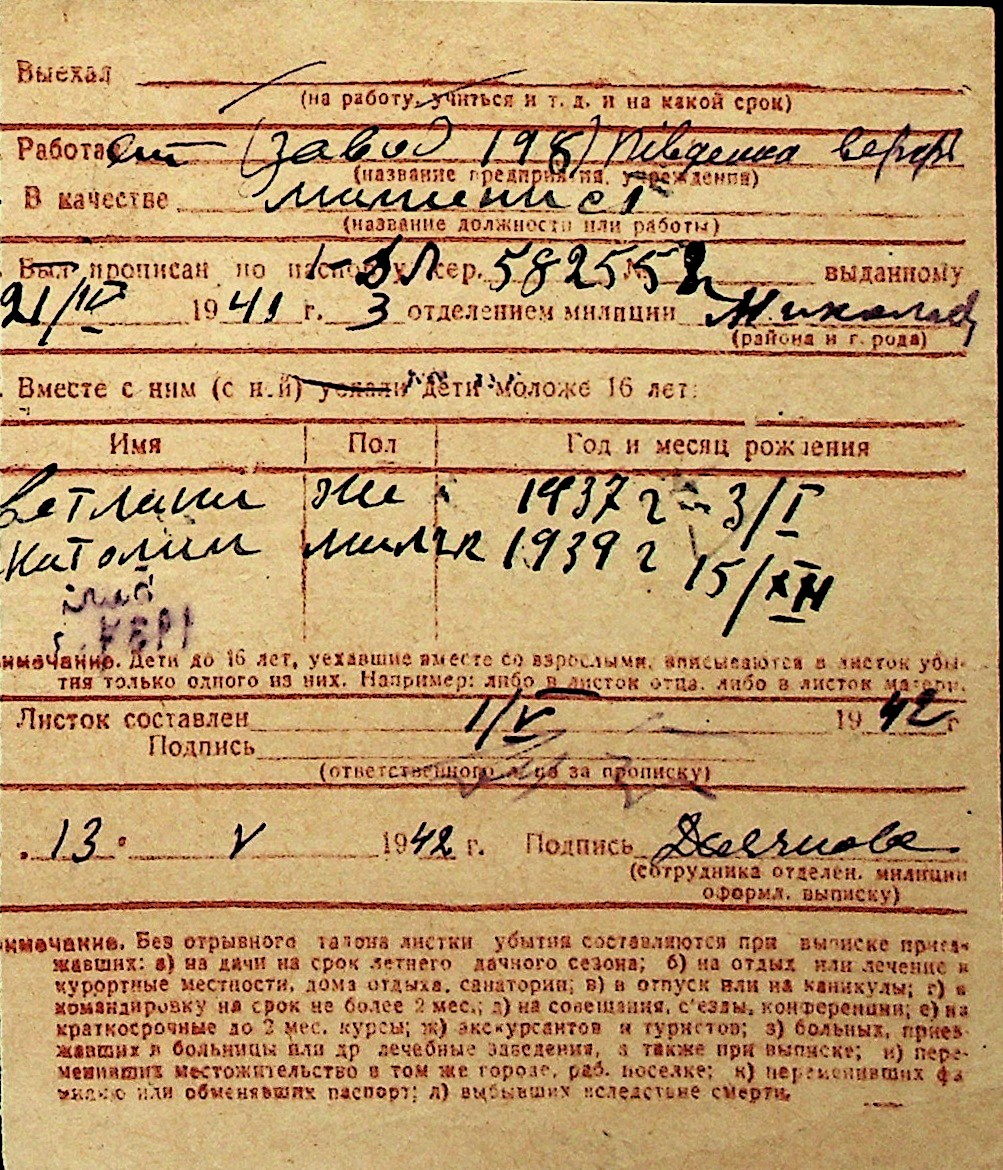 Выехал
(на работу, учиться и т. д. и на какой срок)
Работает (завод 198) Південна верф
(название предприятия, учреждения)
В качестве машинист
(название должности или работы)
Был прописан по паспорту I-ДЛ сер. 582552 № выданному
21/IV 1941 г. 3 отделением милиции Николаев
(района и города)
Вместе с ним (с ней) уехали дети моложе 16 лет:
Имя Пол Год и месяц рождения
ветлана же 1937 г - 3/I
натолии мальч 1939 г 15/XII
имечание. Дети до 16 лет, уехавшие вместе со взрослыми, вписываются в листок убы-
тия только одного из них. Например: либо в листок отца, либо в листок матери.
Листок составлен 1/V 1942 г
Подпись
(ответственного лица за прописку)
13 V 1942 г. Подпись
(сотрудника отделен. милиции
оформл. выписку)
имечание. Без отрывного талона листки убытия составляются при выписке приез-
жавших: а) на дачи на срок летнего дачного сезона; б) на отдых или лечение в
курортные местности, дома отдыха, санатории; в) в отпуск или на каникулы; г) в
командировку на срок не более 2 мес.; д) на совещания, с'езды, конференции; е) на
краткосрочные до 2 мес. курсы; ж) экскурсантов и туристов; з) больных, приез-
жавших в больницы или др лечебные заведения, а также при выписке; и) пере-
менивших местожительство в том же городе, раб. поселке; к) переменивших фа
милию или обменявших паспорт; л) выбывших вследствие смерти.